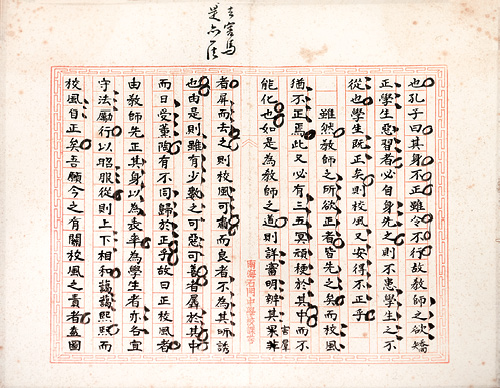 也孔子曰其身不正雖令不行故教師之欲矯
正學生惡習者必自身先之則不患學生之不
從也學生既正矣則校風又安得不正乎
雖然教師之所欲正者皆先之矣而校風
猶不正焉此又必有三五冥頑梗於其中而不
能化也如是為教師之道則詳審明辨其果
害羣
南海石門中學校
者屏而去之則校風可肅而良者不為其所誘
也由是則雖有少數之可惡可善者屬於其中
而日受薰陶有不同歸於正乎故曰正校風者
由教師先正其身以為表率為學生者亦各宜
守法勵行以昭服從則上下相和藹藹熙熙而
校風自正矣吾願今之有關校風之責者盍圖
去害馬
是亦